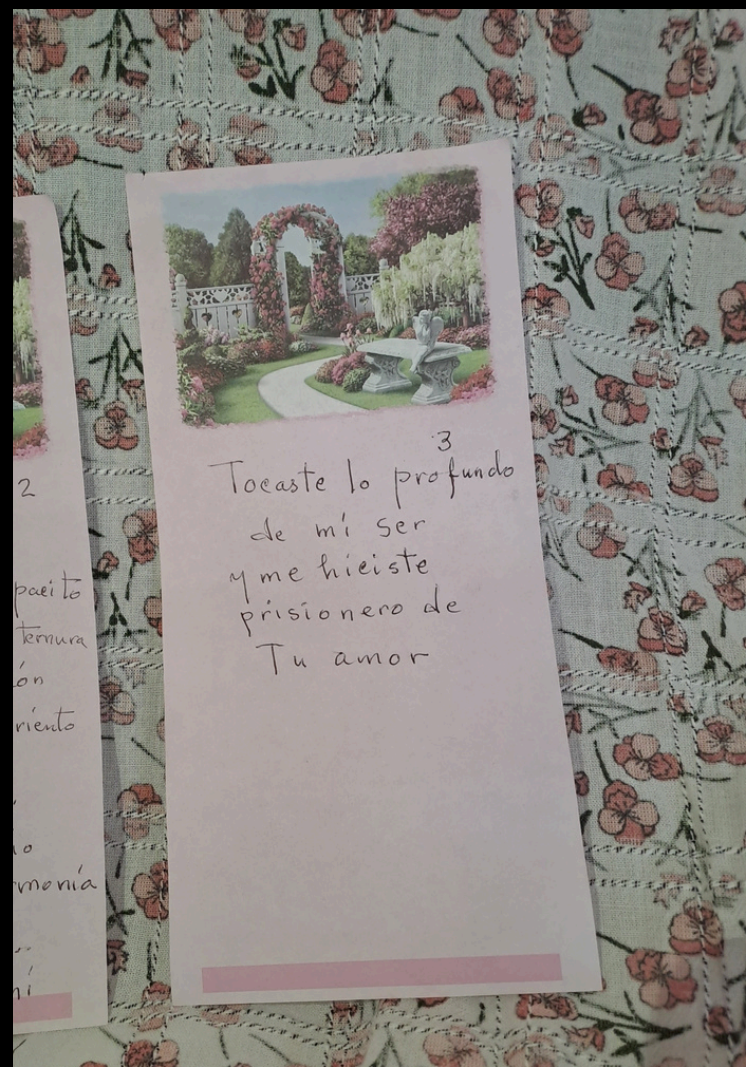 2
pacito
ternura
ón
riento
monía
3
Tocaste lo profundo
de mi ser
y me hiciste
prisionero de
Tu amor